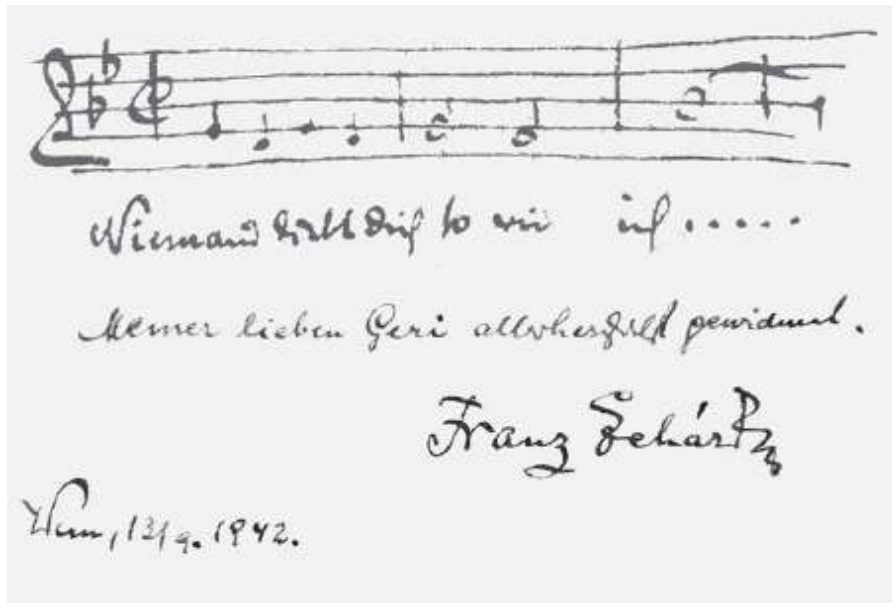 Niemand liebt dich so wie ich.....
Meiner lieben Geri allerherzlichst gewidmet.
Franz Lehár
Wien, 13/9. 1942.